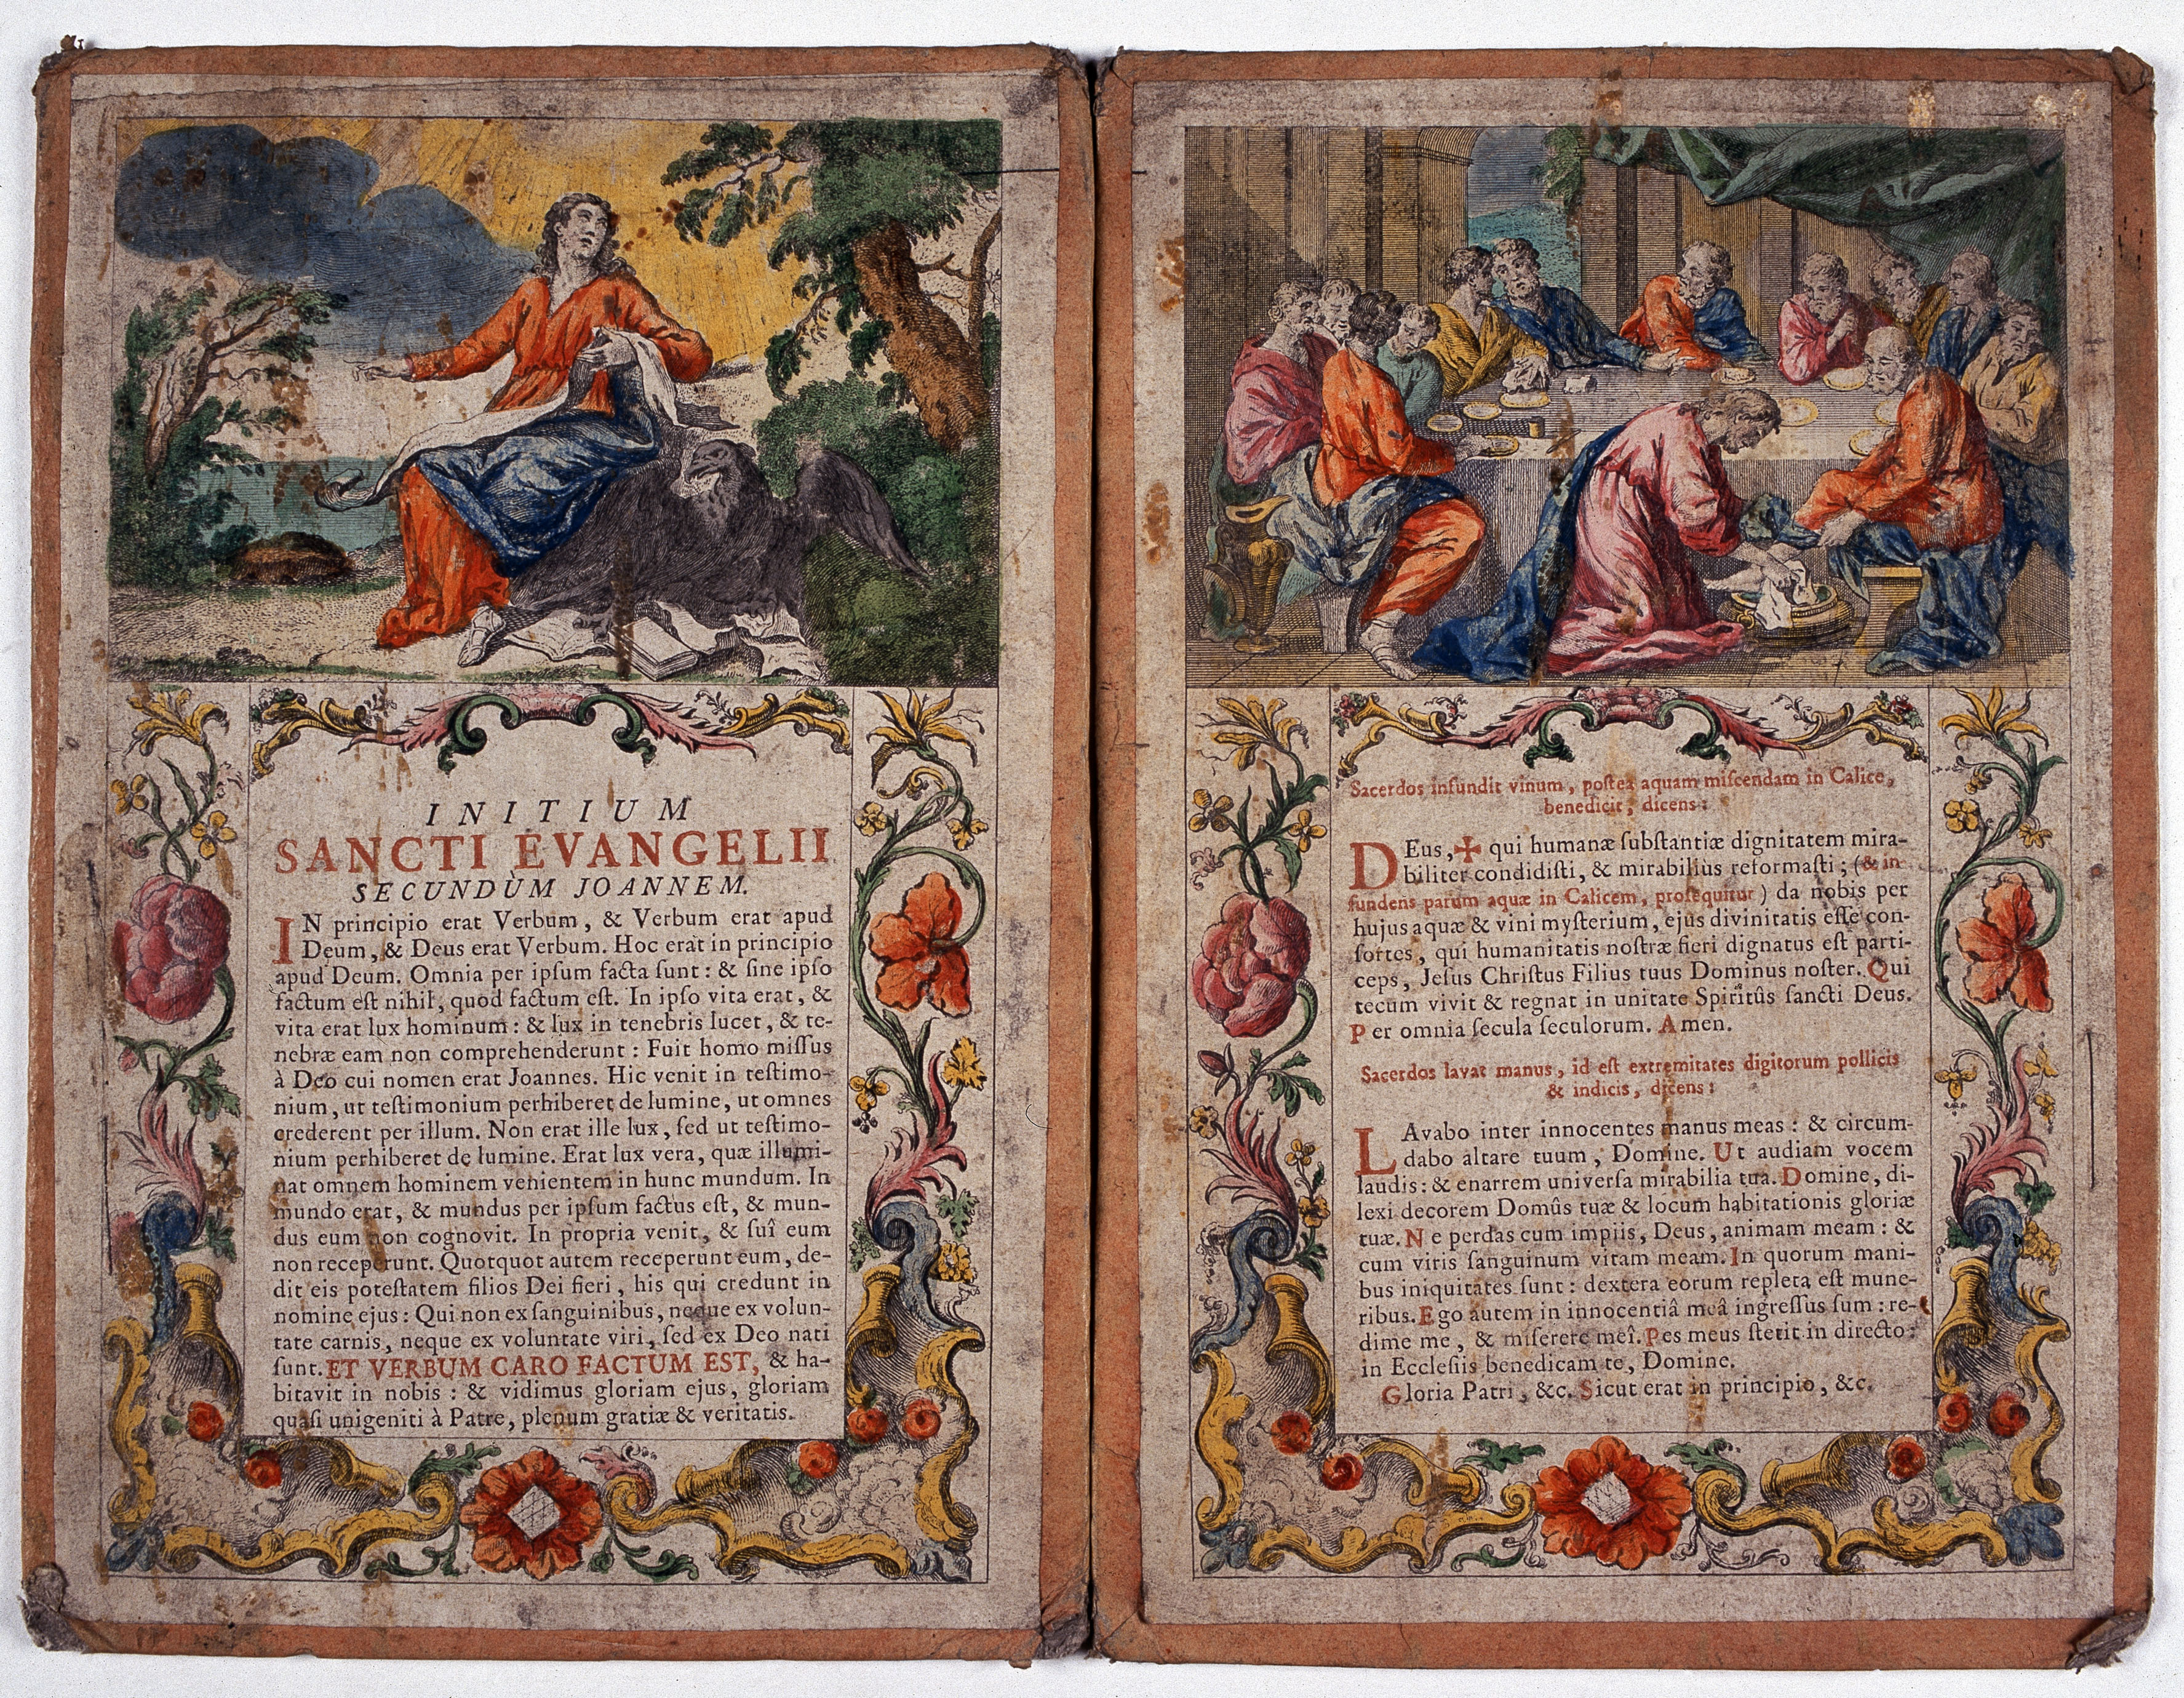 INITIUM
SANCTI EVANGELII
SECUNDÙM JOANNEM.
IN principio erat Verbum, & Verbum erat apud
Deum, & Deus erat Verbum. Hoc erat in principio
apud Deum. Omnia per ipſum facta ſunt: & ſine ipſo
factum eſt nihil, quod factum eſt. In ipſo vita erat, &
vita erat lux hominum: & lux in tenebris lucet, & te-
nebræ eam non comprehenderunt: Fuit homo miſſus
à Deo cui nomen erat Joannes. Hic venit in teſtimo-
nium, ut teſtimonium perhiberet de lumine, ut omnes
crederent per illum. Non erat ille lux, ſed ut teſtimo-
nium perhiberet de lumine. Erat lux vera, quæ illumi-
nat omnem hominem venientem in hunc mundum. In
mundo erat, & mundus per ipſum factus eſt, & mun-
dus eum non cognovit. In propria venit, & ſuî eum
non receperunt. Quotquot autem receperunt eum, de-
dit eis poteſtatem filios Dei fieri, his qui credunt in
nomine ejus: Qui non ex ſanguinibus, neque ex volun-
tate carnis, neque ex voluntate viri, ſed ex Deo nati
ſunt. ET VERBUM CARO FACTUM EST, & ha-
bitavit in nobis: & vidimus gloriam ejus, gloriam
quaſi unigeniti à Patre, plenum gratiæ & veritatis.
Sacerdos infundit vinum, poſtea aquam miſcendam in Calice,
benedicit, dicens:
DEus, ✠ qui humanæ ſubſtantiæ dignitatem mira-
biliter condidiſti, & mirabiliùs reformaſti; (& in-
fundens parum aquæ in Calicem, proſequitur) da nobis per
hujus aquæ & vini myſterium, ejus divinitatis eſſe con-
ſortes, qui humanitatis noſtræ fieri dignatus eſt parti-
ceps, Jeſus Chriſtus Filius tuus Dominus noſter. Qui
tecum vivit & regnat in unitate Spiritûs ſancti Deus.
Per omnia ſecula ſeculorum. Amen.
Sacerdos lavat manus, id eſt extremitates digitorum pollicis
& indicis, dicens:
LAvabo inter innocentes manus meas: & circum-
dabo altare tuum, Domine. Ut audiam vocem
laudis: & enarrem univerſa mirabilia tua. Domine, di-
lexi decorem Domûs tuæ & locum habitationis gloriæ
tuæ. Ne perdas cum impiis, Deus, animam meam: &
cum viris ſanguinum vitam meam. In quorum mani-
bus iniquitates ſunt: dextera eorum repleta eſt mune-
ribus. Ego autem in innocentiâ meâ ingreſſus ſum: re-
dime me, & miſerere meî. Pes meus ſtetit in directo:
in Eccleſiis benedicam te, Domine.
Gloria Patri, &c. Sicut erat in principio, &c.